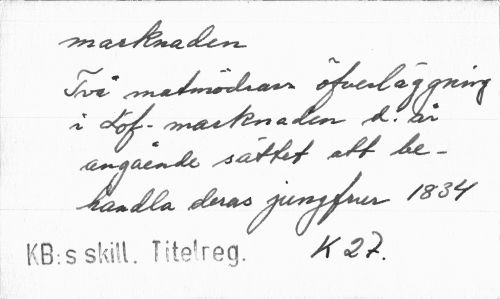 marknaden
Två matmödrars öfverläggning
i Hof-marknaden d. år
angående sättet att be-
handla deras jungfrur 1834
KB:s skill. Titelreg. K 27.